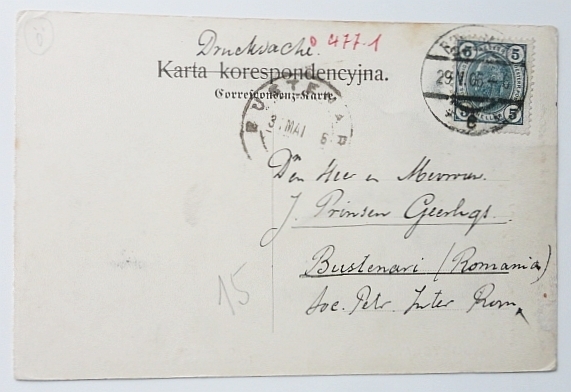 Drucksache. 0 477-1
Karta korespondencyjna.
Correspondenz-Karte.
5 5
29 V 06
BUSTENAR
31 MAI 6
5
Den Heer en Mevrouw.
J. Prinsen Geerligs.
Bustenari (Romania)
Soc. Petr. Inter Rom.
15